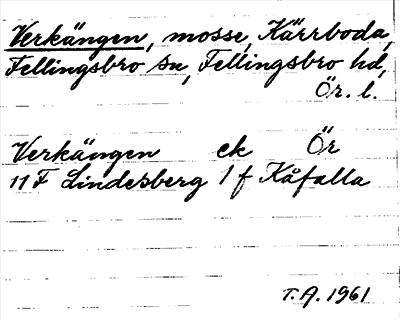 Verkängen, mosse, Kärrboda,
Fellingsbro sn, Fellingsbro hd,
Ör. l.
Verkängen ek Ör
11 F Lindesberg 1 f Kåfalla
T.A. 1961